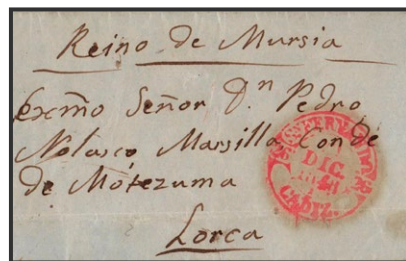 Reino de Mursia
Exmõ Señor Dⁿ Pedro
Nolasco Marsilla, Conde
de Mõtezuma
Lorca
DIC.
CADIZ.